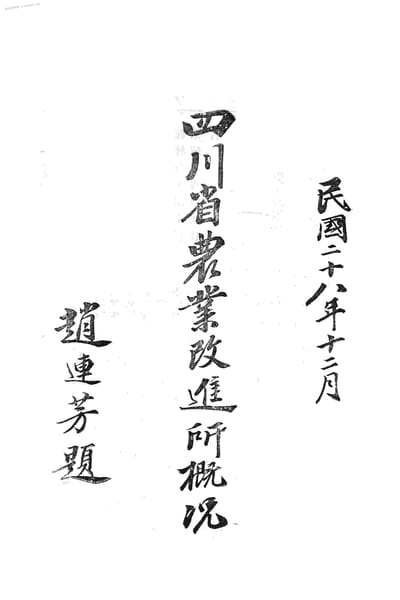 民國二十八年十二月
四川省農業改進所概况
趙連芳題